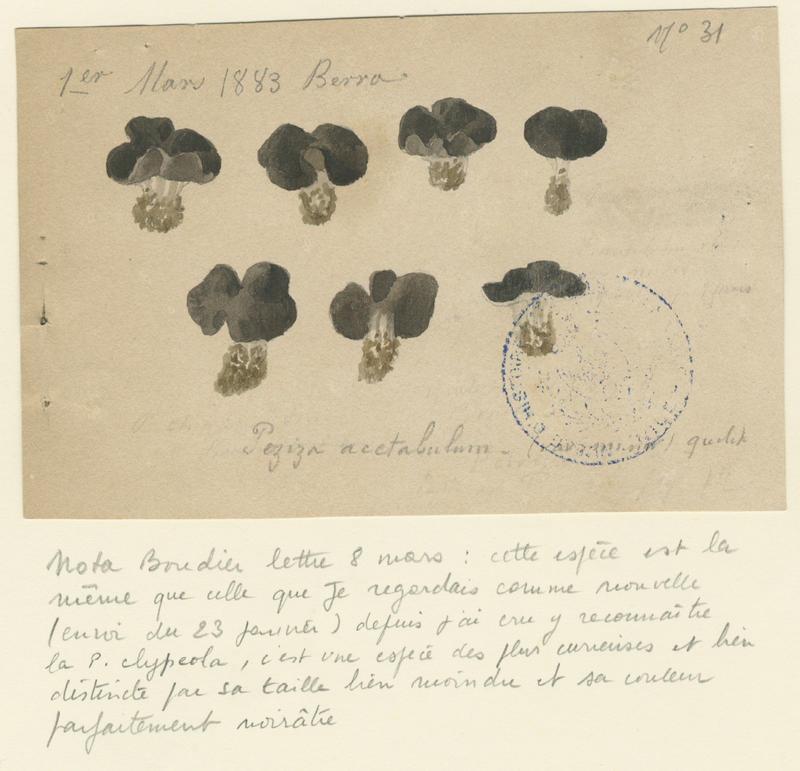 No 31
1er Mars 1883 Berra
Peziza acetabulum - (var. minor) quelet
Nota Boudier lettre 8 mars : cette espèce est la
même que celle que je regardais comme nouvelle
(envoi du 23 janvier) depuis j'ai cru y reconnaître
la P. clypeola, c'est une espèce des plus curieuses et bien
distincte par sa taille bien moindre et sa couleur
parfaitement noirâtre